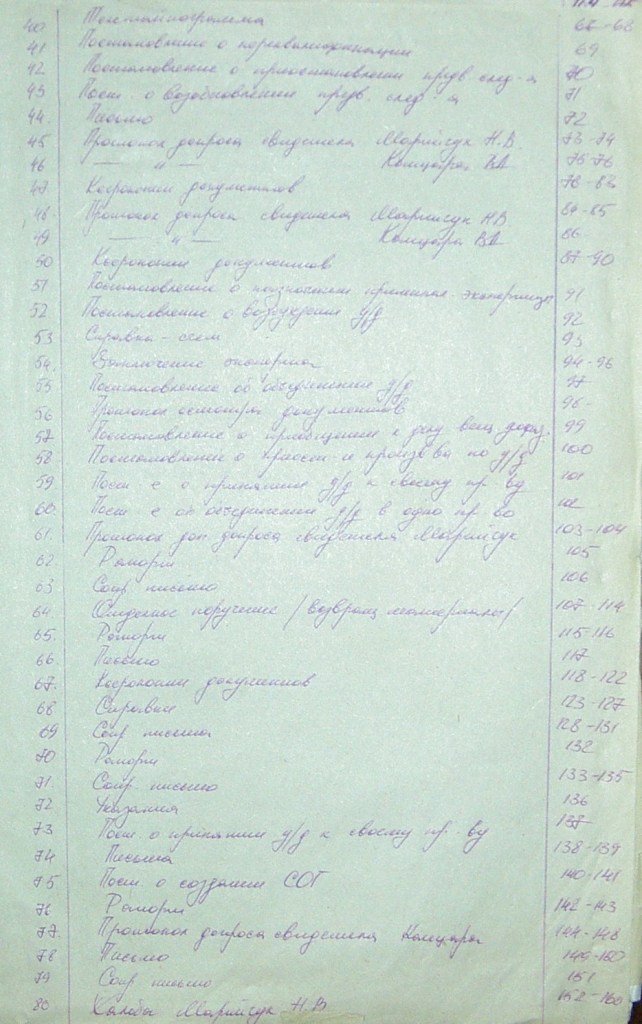 40 Телетайпограмма 66-68
41 Постановление о переквалификации 69
42 Постановление о приостановлении предв. след-я 70
43 Пост. о возобновлении предв. след-я 71
44. Письмо 72
45 Протокол допроса свидетеля Марийчук Н.В. 73-74
46 — " — В.А. 75-76
47 Ксерокопии документов 78-83
48. Протокол допроса свидетеля Марийчук Н.В. 84-85
49 — " — В.А. 86
50 Ксерокопии документов 87-90
51 Постановление о назначении криминал. экспертизы 91
52 Постановление о возбуждении у/д 92
53 Справка-счет 93
54. Заключение эксперта 94-96
55 Постановление об объединении у/д 97
56 Протокол осмотра документов 98
57 Постановление о приобщении к делу вещ. доказ. 99
58 Постановление о приост-и произв-ва по у/д 100
59 Пост-е о принятии у/д к своему пр-ву 101
60 Пост-е об объединении у/д в одно пр-во 102
61. Протокол доп. допроса свидетеля Марийчук 103-104
62. Рапорт 105
63 Сопр. письмо 106
64 Отдельное поручение /возвращ. материалы/ 107-114
65. Рапорт 115-116
66. Письмо 117
67. Ксерокопии документов 118-122
68 Справки 123-127
69 Сопр. письма 128-131
70 Рапорт 132
71. Сопр. письмо 133-135
72. Указания 136
73 Пост. о принятии у/д к своему пр-ву 137
74 Письма 138-139
75 Пост. о создании СОГ 140-141
76 Рапорт 142-143
77. Протокол допроса свидетеля 144-148
78 Письмо 149-150
79 Сопр. письмо 151
80. Жалобы Марийчук Н.В 152-160